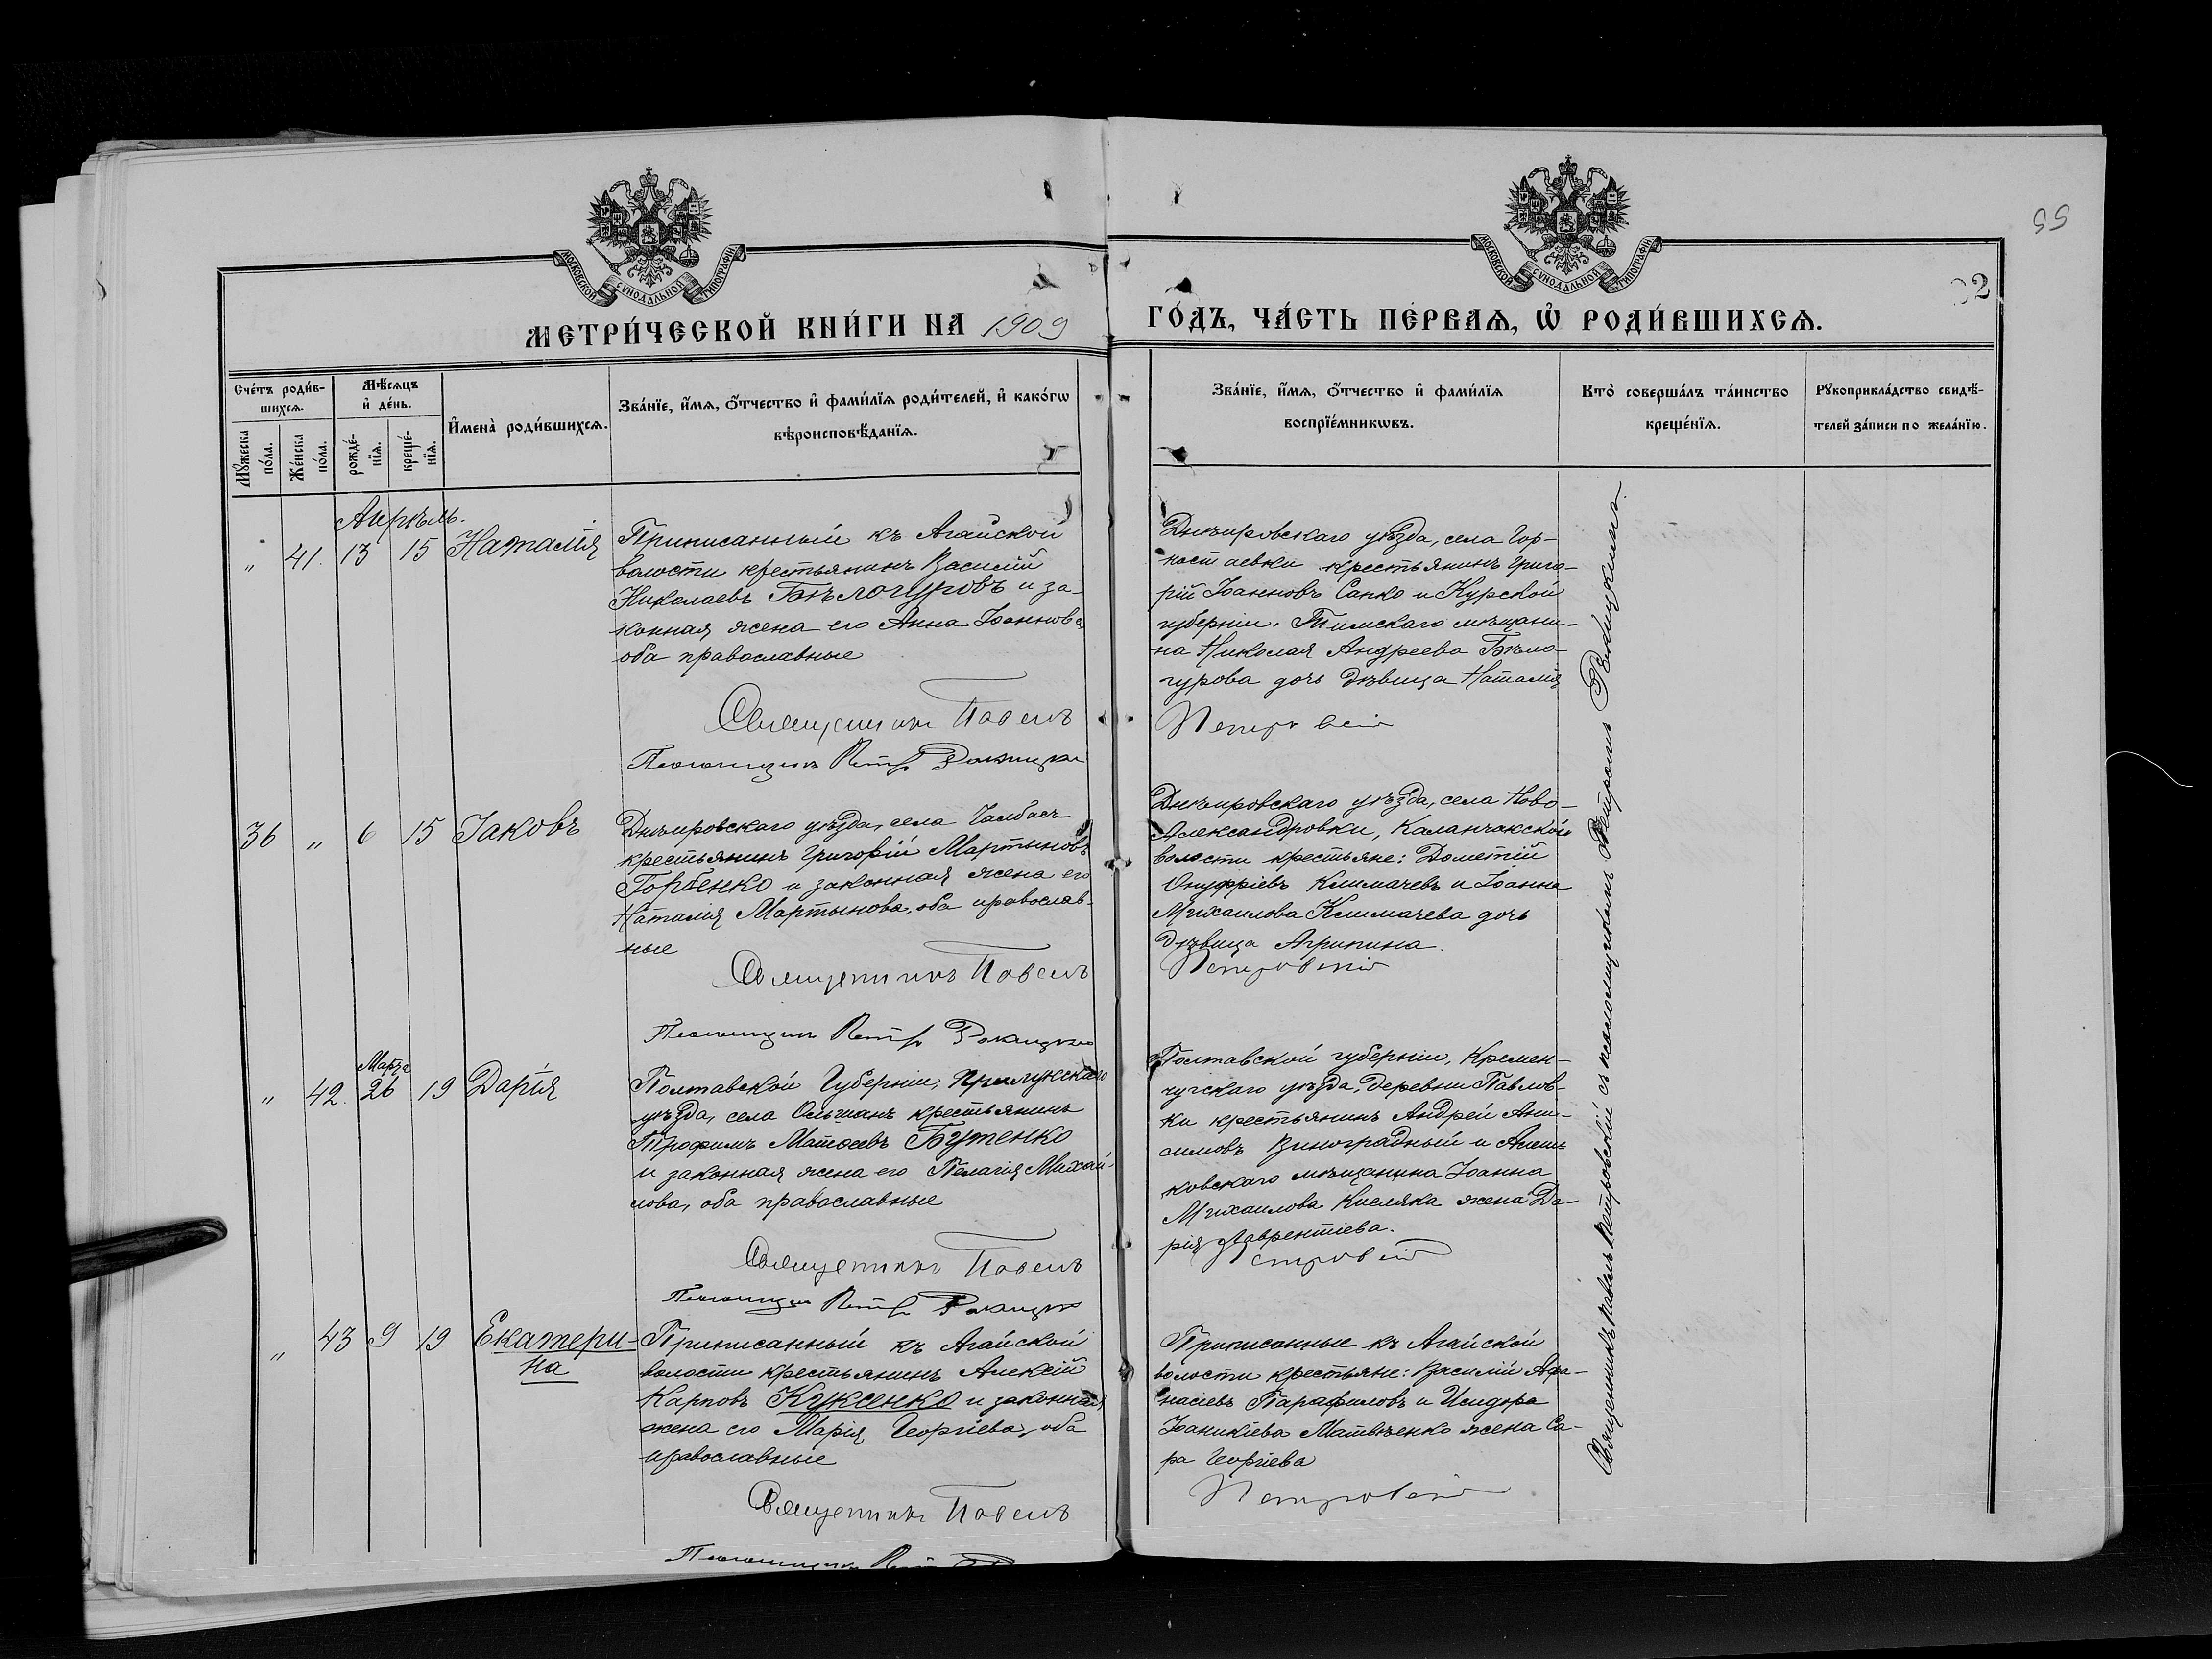 МОСКОВСКОЙ СѴНОДАЛЬНОЙ ТИПОГРАФІИ
МОСКОВСКОЙ СѴНОДАЛЬНОЙ ТИПОГРАФІИ
55
92
МЕТРИ́ЧЕСКОЙ КНИ́ГИ НА 1909
ГО́ДЪ, ЧА́СТЬ ПЕ́РВАѦ, Ѡ҆ РОДИ́ВШИХСѦ.
Сче́тъ роди́в-
шихсѧ.
Мꙋ́жеска
по́ла.
Же́нска
по́ла.
Мѣ́сѧцъ
и҆ де́нь.
рожде́-
нїѧ.
креще́-
нїѧ.
И҆мена̀ роди́вшихсѧ.
Зва́нїе, и҆́мѧ, ѻ҆́тчество и҆ фами́лїѧ роди́телей, и҆ како́гѡ
вѣроисповѣ́данїѧ.
Зва́нїе, и҆́мѧ, ѻ҆́тчество и҆ фами́лїѧ
воспрїе́мникѡвъ.
Кто̀ соверша́лъ та́инство
креще́нїѧ.
Рꙋкоприкла́дство свидѣ́-
телей за́писи по жела́нїю.
Апрѣль.
„ 41. 13 15 Наталія
Приписанный къ Агайской
волости крестьянинъ Василій
Николаевъ Бѣлогуровъ и за-
конная жена его Анна Іоаннова
оба православные
Священникъ Павелъ
Псаломщикъ Петръ Рокицкій
Днѣпровскаго уѣзда, села Гор-
ностаевки крестьянинъ Григо-
рій Іоанновъ Сапко и Курской
губерніи. Тимскаго мѣщани-
на Николая Андреева Бѣло-
гурова дочь дѣвица Наталія
Петровскій
36 „ 6 15 Іаковъ
Днѣпровскаго уѣзда, села Чалбасъ
крестьянинъ Григорій Мартыновъ
Горбенко и законная жена его
Наталія Мартынова, оба православ-
ные
Священникъ Павелъ
Псаломщикъ Петръ Рокицкій
Днѣпровскаго уѣзда, села Ново-
Александровки, Каланчакской
волости крестьяне: Дометій
Онуфріевъ Климачевъ и Іоанна
Михаилова Климачева дочь
дѣвица Агрипина.
Петровскій
Марта
„ 42. 26 19 Дарія
Полтавской Губерніи, Прилукскаго
уѣзда, села Ольшанъ крестьянинъ
Трофимъ Матѳеевъ Бутенко
и законная жена его Пелагія Михаи-
лова, оба православные
Священникъ Павелъ
Псаломщикъ Петръ Рокицкій
Полтавской губерніи, Кремен-
чугскаго уѣзда, деревни Павлов-
ки крестьянинъ Андрей Ани-
симовъ Виноградный и Алеш-
ковскаго мѣщанина Іоанна
Михаилова Кисляка жена Да-
рія Лаврентіева.
Петровскій
„ 43 9 19 Екатери-
на
Приписанный къ Агайской
волости крестьянинъ Алексій
Карповъ Кужсенко и законная
жена его Марія Георгіева, оба
православные
Священникъ Павелъ
Псаломщикъ Петръ
Приписанные къ Агайской
волости крестьяне: Василій Афа-
насіевъ Парафиловъ и Исидора
Іоаникіева Матвѣенко жена Са-
ра Георгіева
Петровскій
Священникъ Павелъ Петровскій съ псаломщикомъ Петромъ Рокицкимъ.